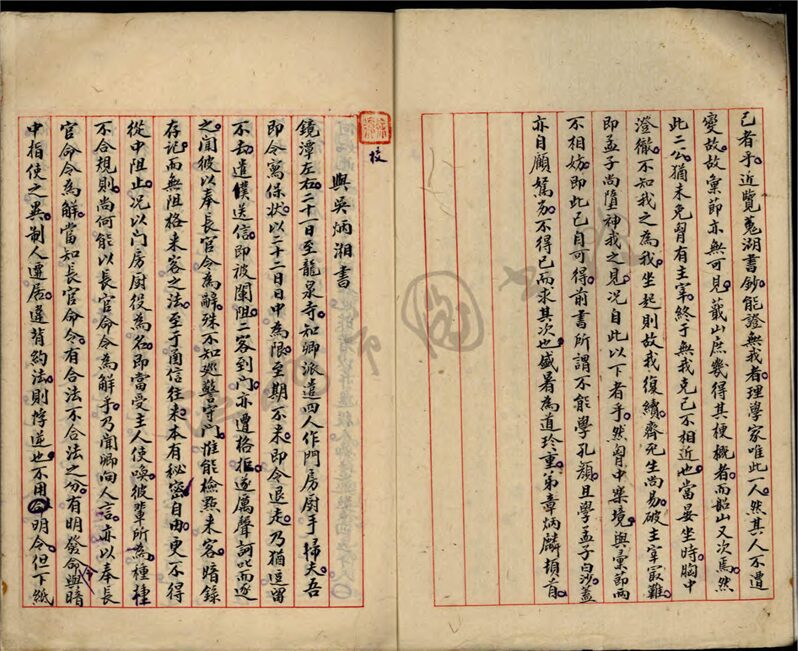 己者乎。近覽菟湖書鈔。能證無我者。理學家唯此一人。然其人不遭
變故。故彙節亦無可見。蕺山庶幾得其梗概者。而船山又次焉。然
此二公猶未免胷有主宰。終于無我克己不相近也。當晏坐時。胸中
澄徹。不知我之為我。坐起則故我復續。齊死生尚易。破主宰最難。
即孟子尚墮神我之見。况自此以下者乎。然胷中樂境。與彙節兩
不相妨。即此已自可得。前書所謂不能學孔顏。且學孟子白沙。蓋
亦自顧駑劣。不得已而求其次也。盛暑為道珍重。弟章炳麟頓首。
校
與吳炳湘書
鏡潭左右。二十一日至龍泉寺。知卿派遣四人作門房廚手掃夫。吾
即令寫保狀。以二十二日日中為限。至期不来。即令退走。乃猶逗留
不去。遣僕送信。即被闌阻。二客到門。亦遭格拒。遂厲聲訶叱而逐
之。聞彼以奉長官令為辭。殊不知巡警守門。准能檢點来客。暗錄
存記。而無阻格来客之法。至于函信往来。本有秘密自由。更不得
從中阻止。况以门房厨役為名。即當受主人使喚。彼輩所為。種種
不合規則。尚何能以長官命令為解乎。乃聞卿向人言。亦以奉長
官命令為解。當知長官命令。有合法不合法之分。有明發命令與暗
中指使之異。制人遷居。違背約法。則悖逆也。不用明令。但下紙